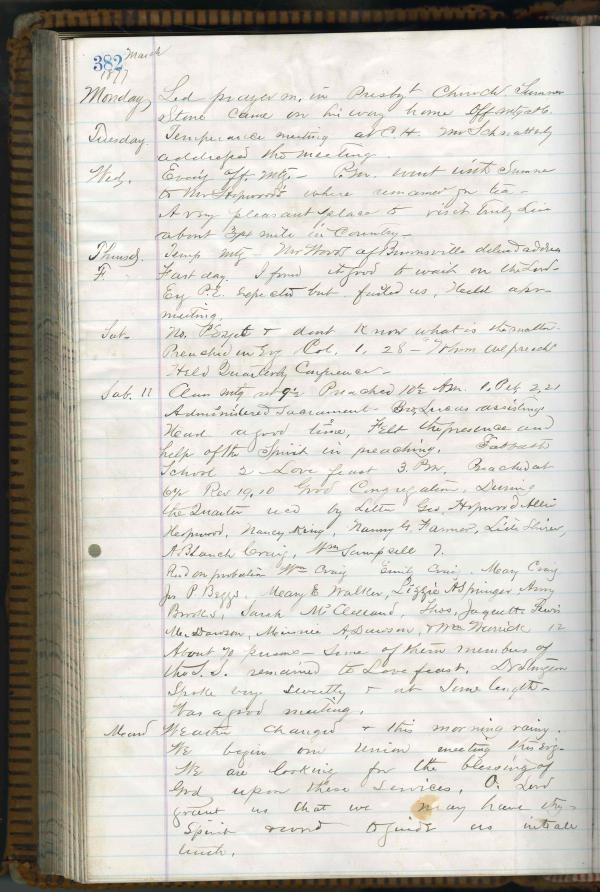 382 March
1877
Monday Led prayer m. in Presbyt Church. Sumner
Stone came on his way home Off mtg at 6.
Tuesday. Temperance meeting at C.H. Mr Schnatterly
addressed the meeting.
Wed. Evening Off. mtg. P.M. went with Sumner
to Mr Hopwood's where remained for tea -
A very pleasant place to visit Truly Live
about 3/4 mile in Country -
Thursd. Temp mtg - Mr Wood of Burnsville deliverd address
F. Fast day. I found it good to wait on the Lord -
Evg P.E. expected but failed us, Held a pr-
meeting.
Sat. No. P E yet & dont know what is the matter.
Preached in Evg Col. 1, 28 - "Whom we preach"
Held Quarterly Conference -
Sab. 11 Class mtg at 9½ Preached 10½ A.M. 1, Pet 2,21
Administered Sacrament - Bro Lucas assisting
Had a good time, Felt the presence and
help of the Spirit in preaching. Sabbath
School 2 - Love feast 3. P.M. Preached at
6½ Rev 19,10 Good Congregation, During
the Quarter recd by Letter Geo Hopwood
Hopwood, Nancy King, Nanny G. Farmer,
A Blanch Craig, Wm Sampsell 7.
Recd on probation Wm Craig Emily Craig. Mary Craig
P Beggs. Mary E Walker, Lizzie A Springer Amy
Brooks, Sarah McClelland, Thos, Jaquett
M. Dawson, Minnie A Dawson, & Wm Merrick 12
About 70 persons - some of them members of
the S.S. remained to Love feast. Dr
Spoke very sweetly & at some length -
Was a good meeting.
Weather changed & this morning rainy.
We begin our Union meeting this Evg -
We are looking for the blessing of
God upon these services, O. Lord
grant us that we may have thy
Spirit & word to guide us into all
truth.